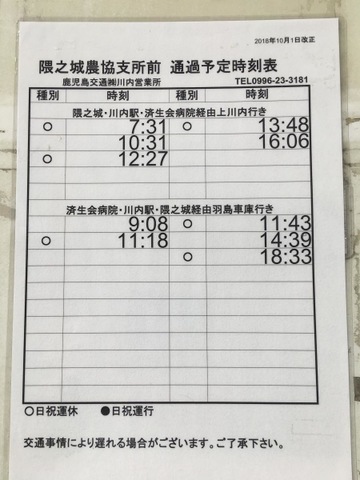 2018年10月1日改正
隈之城農協支所前 通過予定時刻表
鹿児島交通㈱川内営業所 TEL0996-23-3181
種別 時刻 種別 時刻
隈之城・川内駅・済生会病院経由上川内行き
○ 7:31 ○ 13:48
10:31 16:06
○ 12:27
済生会病院・川内駅・隈之城経由羽島車庫行き
9:08 ○ 11:43
○ 11:18 14:39
○ 18:33
○日祝運休 ●日祝運行
交通事情により遅れる場合がございます。ご了承下さい。